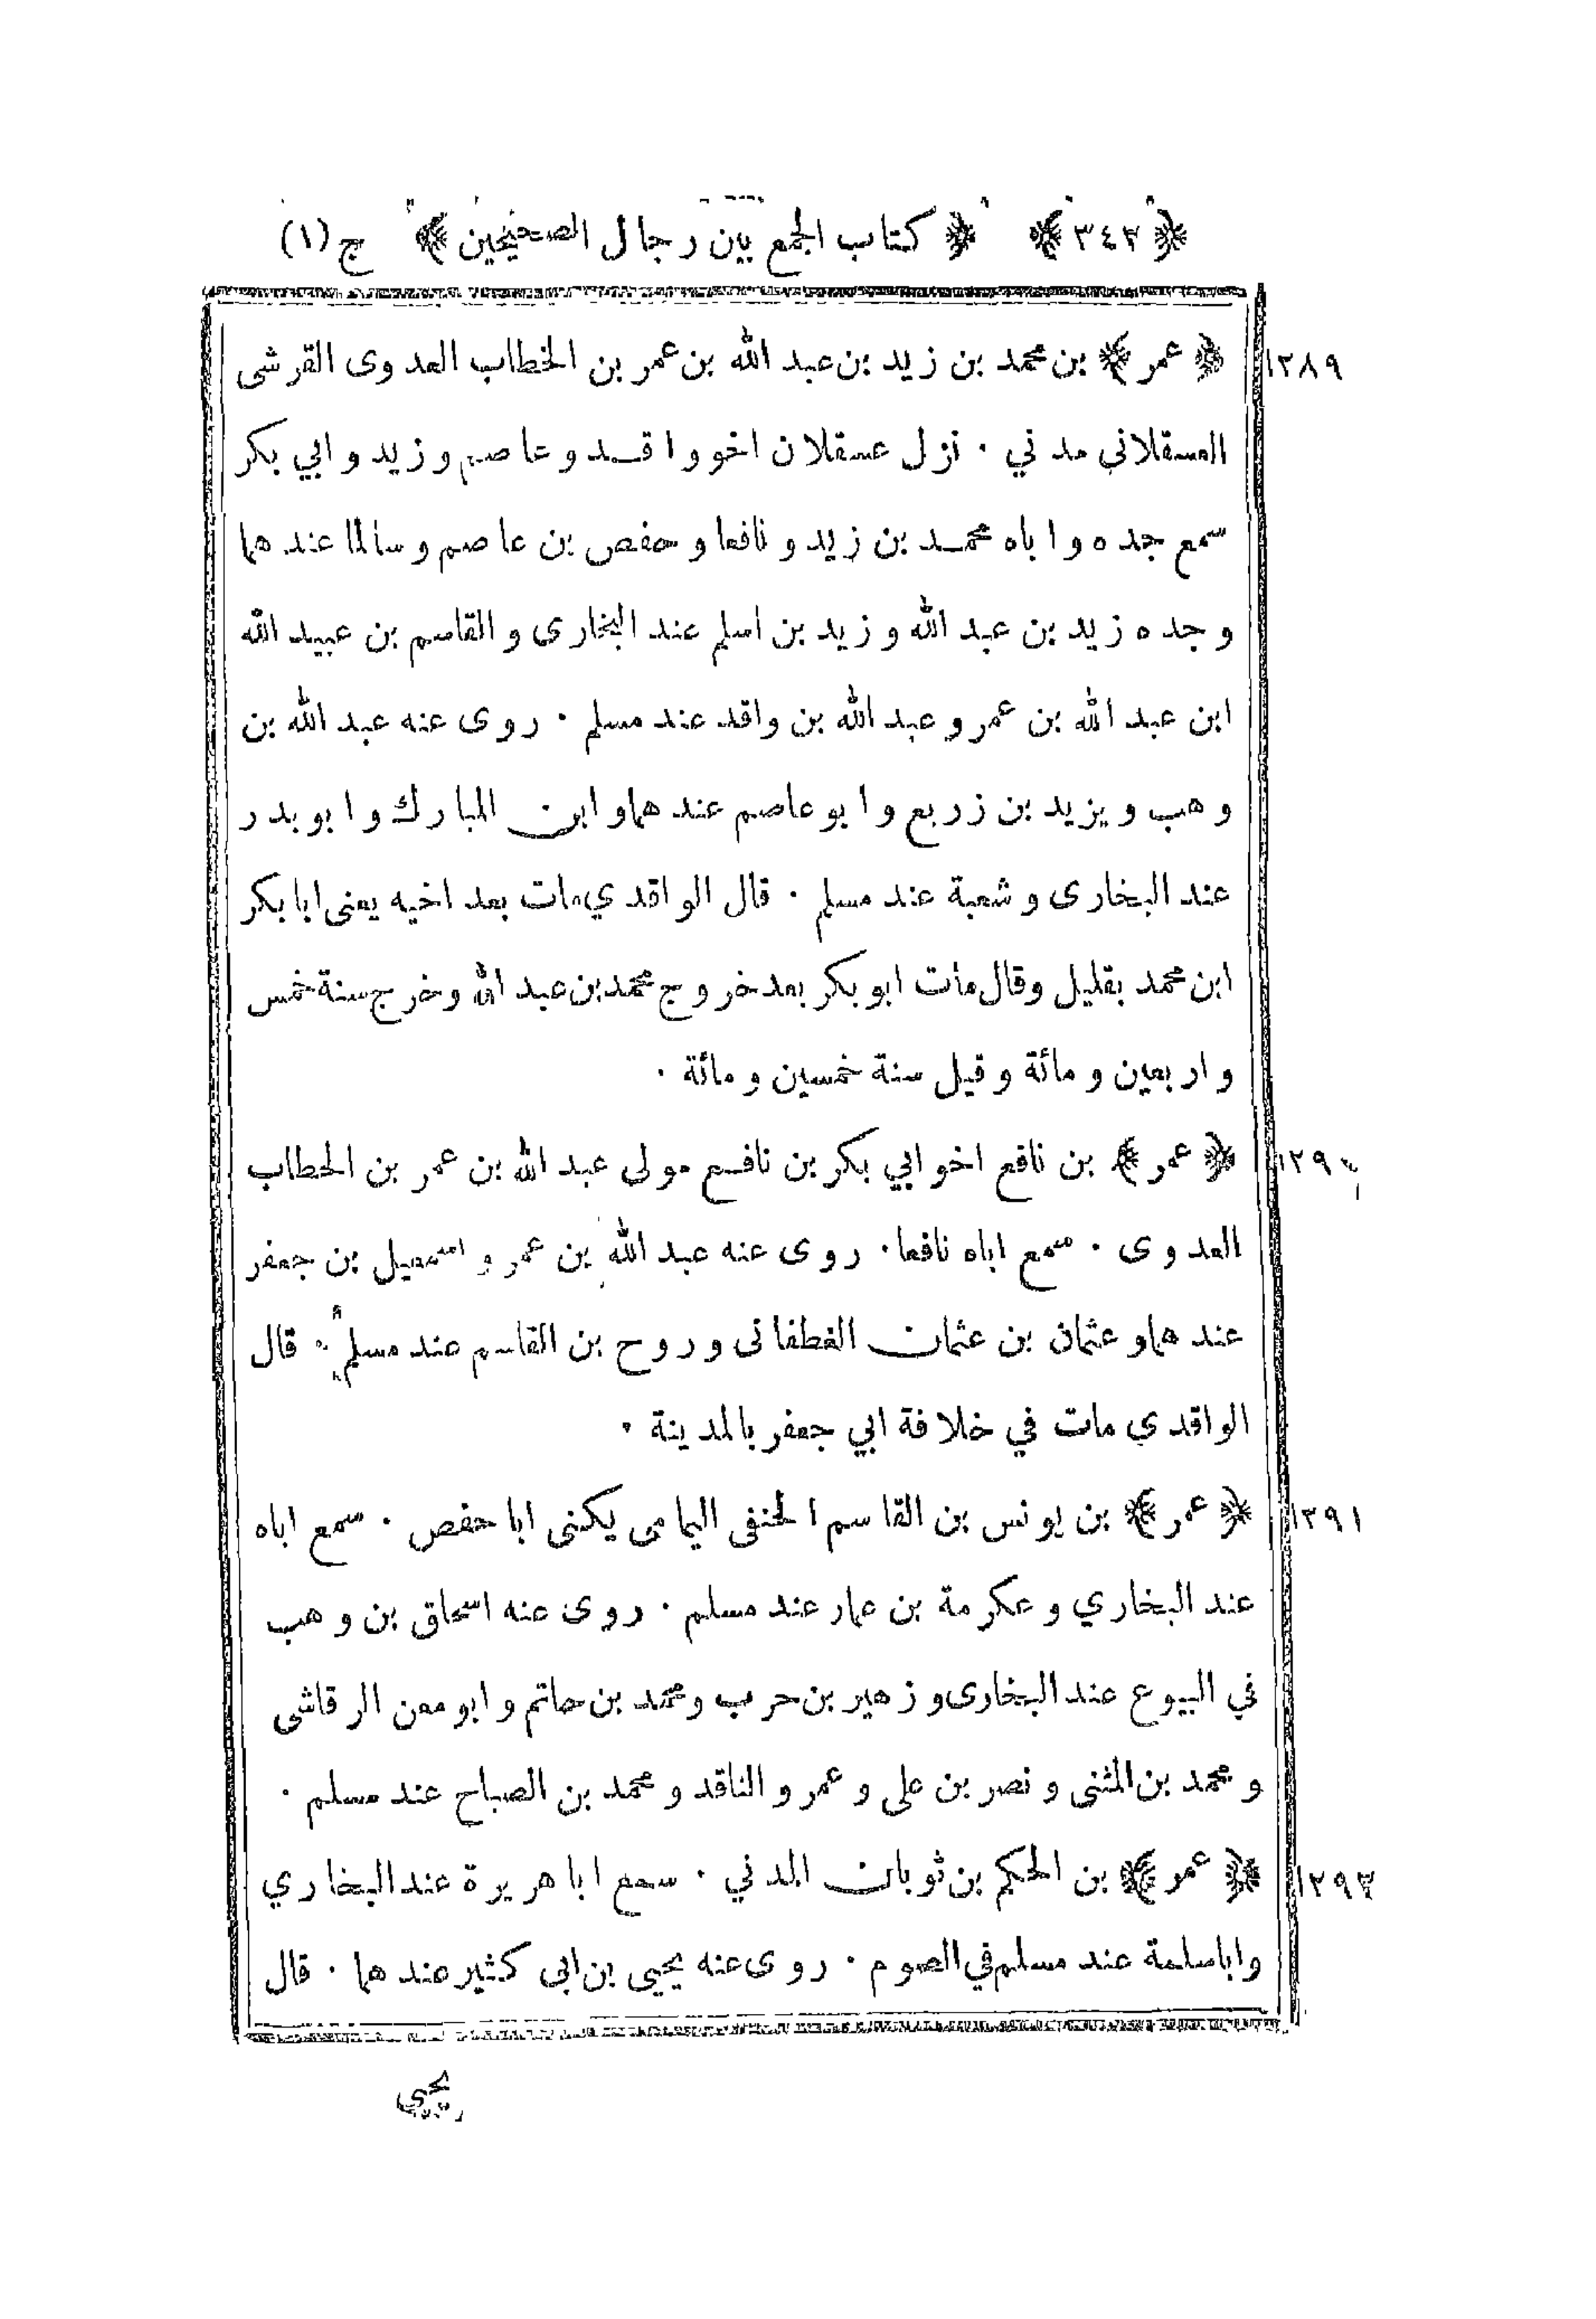 ﴿٣٤٢﴾ ﴿كتاب الجمع بين رجال الصحيحين﴾ ج (١)
١٢٨٩ ﴿عمر﴾ بن محمد بن زيد بن عبد الله بن عمر بن الخطاب العدوى القرشى
العسقلاني مدني ٠ نزل عسقلان اخو واقد وعاصم وزيد وابي بكر
سمع جده واباه محمد بن زيد ونافعا وحفص بن عاصم وسالما عندهما
وجده زيد بن عبد الله وزيد بن اسلم عند البخارى والقاسم بن عبيد الله
ابن عبد الله بن عمر وعبد الله بن واقد عند مسلم ٠ روى عنه عبد الله بن
وهب ويزيد بن زريع وابو عاصم عندهما وابن المبارك وابو بدر
عند البخارى وشعبة عند مسلم ٠ قال الواقدي مات بعد اخيه يعنى ابا بكر
ابن محمد بقليل وقال مات ابو بكر بعد خروج محمد بن عبد الله وخرج سنة خمس
واربعين ومائة وقيل سنة خمسين ومائة ٠
١٢٩٠ ﴿عمر﴾ بن نافع اخو ابي بكر بن نافع مولى عبد الله بن عمر بن الخطاب
العدوى ٠ سمع اباه نافعا ٠ روى عنه عبد الله بن عمر واسمعيل بن جعفر
عندهما وعثمان بن عثمان الغطفانى وروح بن القاسم عند مسلم ٠ قال
الواقدي مات في خلافة ابي جعفر بالمدينة ٠
١٢٩١ ﴿عمر﴾ بن يونس بن القاسم الحنفى اليمامى يكنى ابا حفص ٠ سمع اباه
عند البخاري وعكرمة بن عمار عند مسلم ٠ روى عنه اسحاق بن وهب
في البيوع عند البخارى وزهير بن حرب ومحمد بن حاتم وابو معن الرقاشى
ومحمد بن المثنى ونصر بن على وعمرو الناقد ومحمد بن الصباح عند مسلم ٠
١٢٩٢ ﴿عمر﴾ بن الحكم بن ثوبان المدني ٠ سمع ابا هريرة عند البخاري
وابا سلمة عند مسلم في الصوم ٠ روى عنه يحيى بن ابى كثير عندهما ٠ قال
يحيي